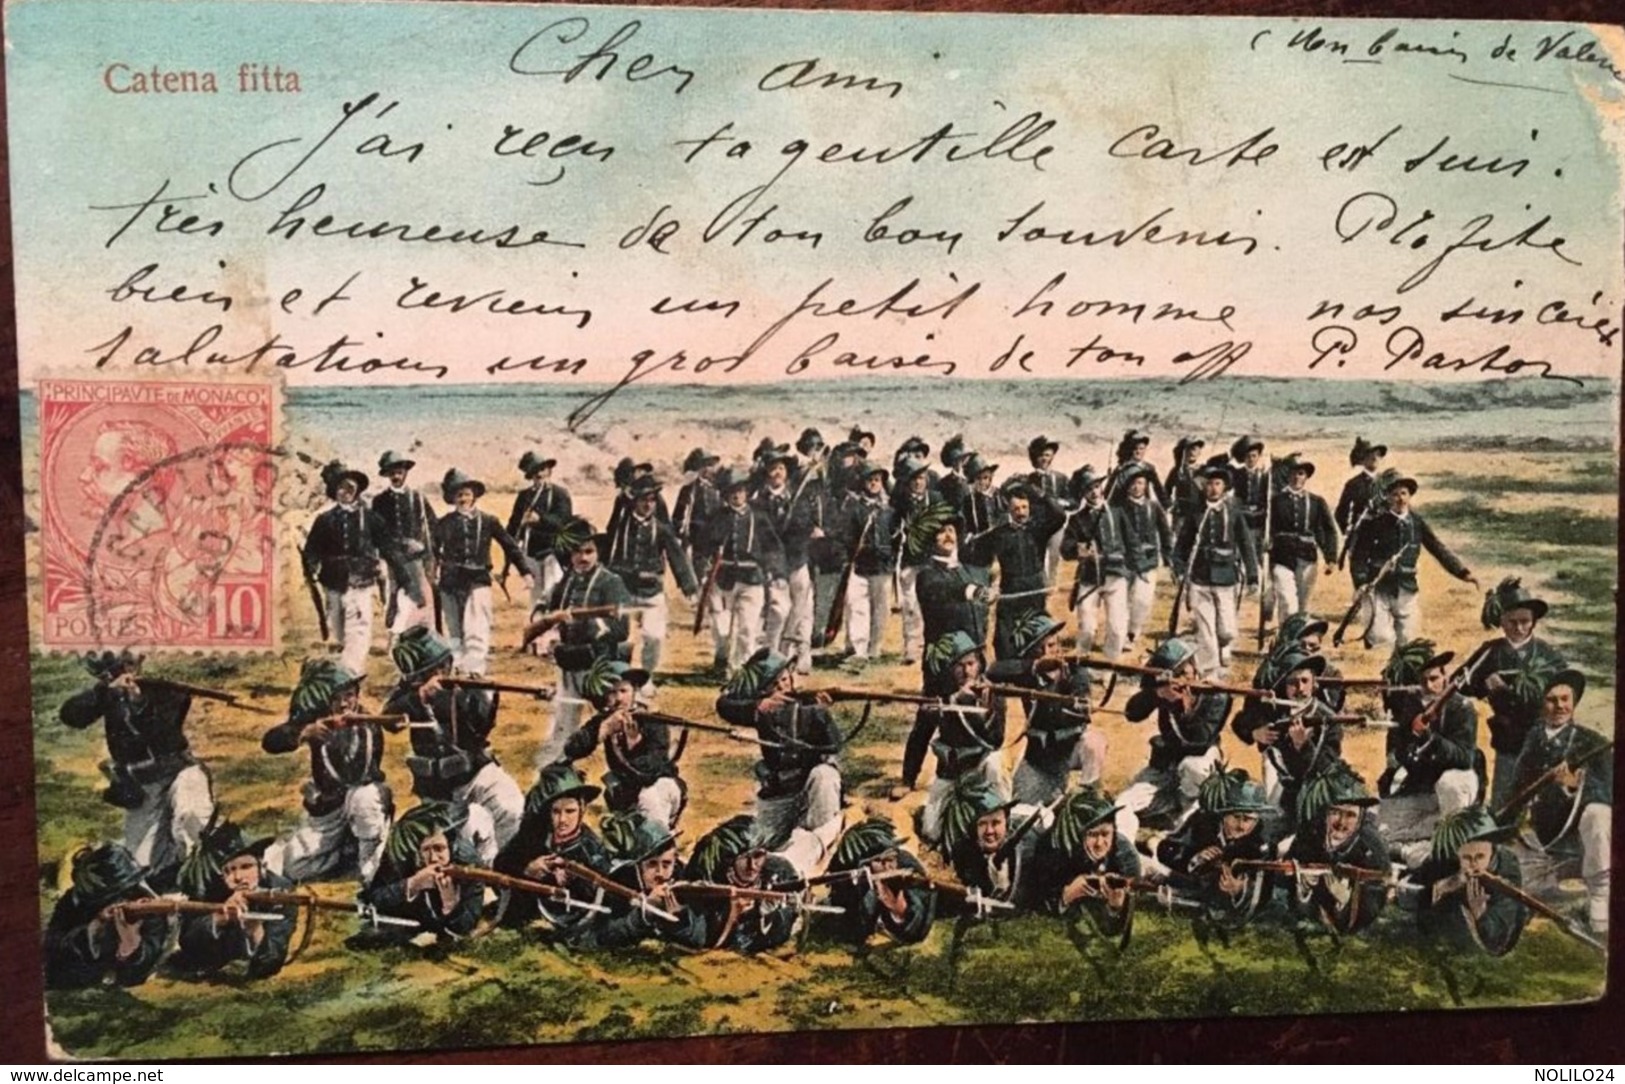 Catena fitta
Cher ami
(Mon baiser de
J'ai reçu ta gentille carte est suis.
très heureuse de ton bon souvenir. Plofite
bien et reviens un petit homme nos sincères
salutations un gros baiser de ton aff P. Pastor
PRINCIPAVTE DE MONACO
10
POSTES
www.delcampe.net
NOLILO24